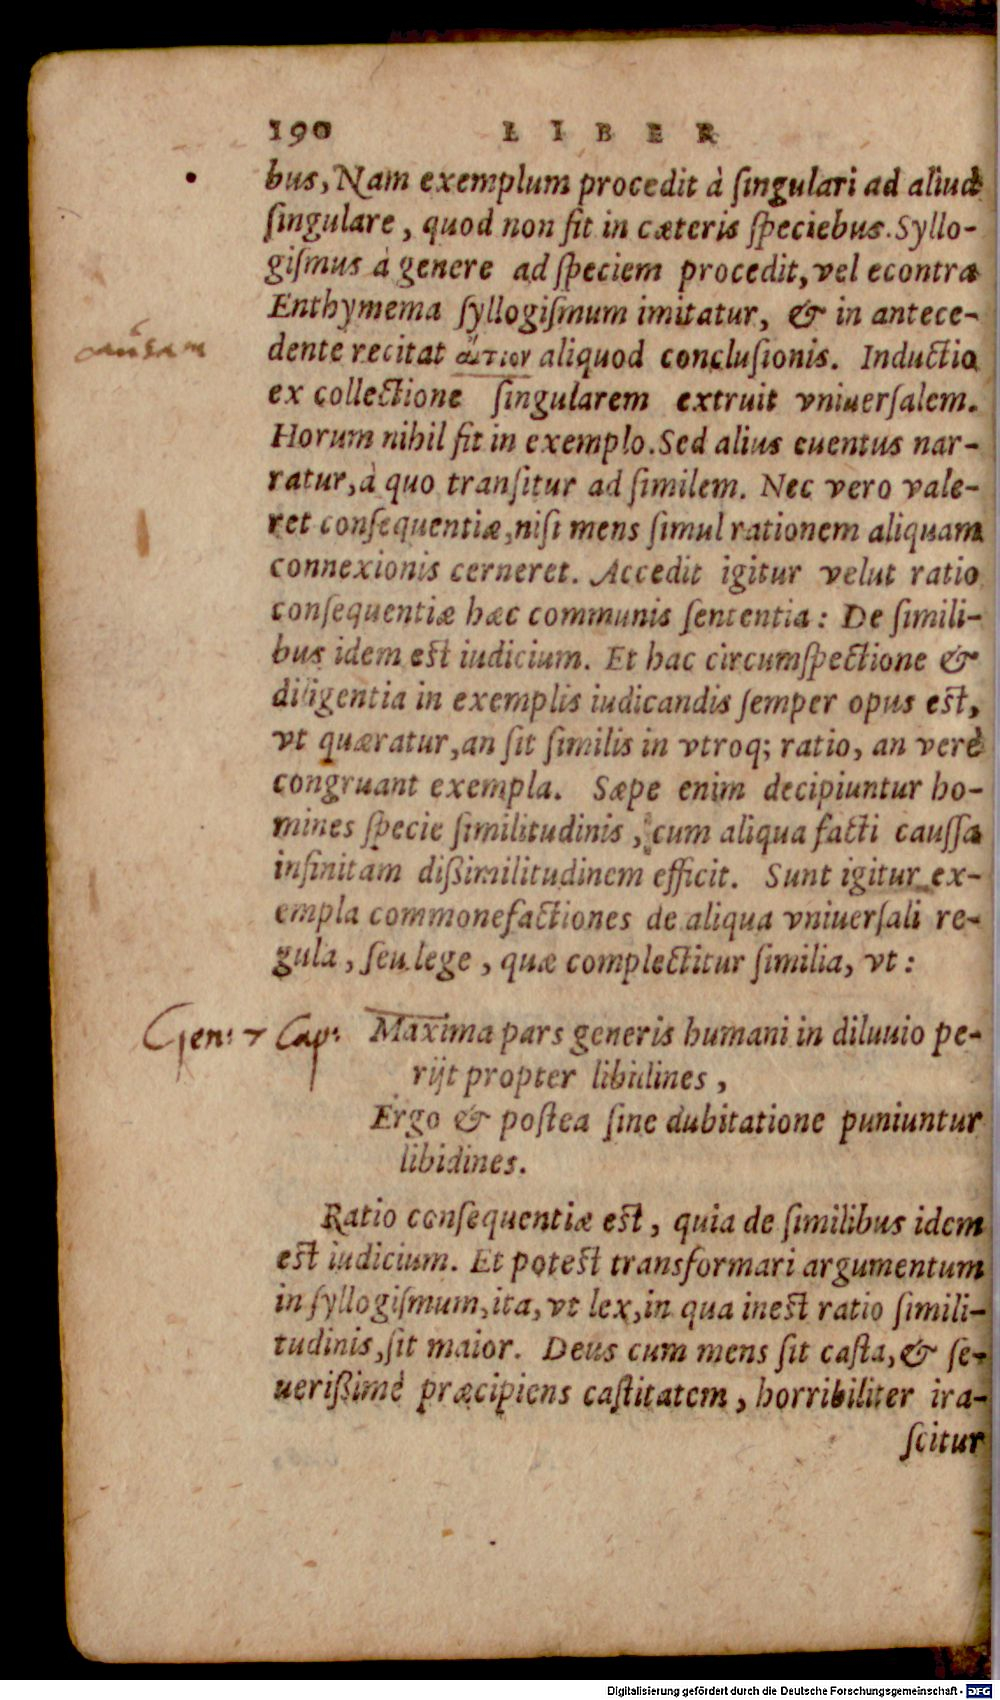 190 LIBER
bus, Nam exemplum procedit à ſingulari ad aliud
ſingulare, quod non fit in cæteris ſpeciebus. Syllo-
giſmus à genere ad ſpeciem procedit, vel econtra
Enthymema ſyllogiſmum imitatur, & in antece-
causam
dente recitat αἴτιον aliquod concluſionis. Inductio
ex collectione ſingularem extruit vniuerſalem.
Horum nihil fit in exemplo. Sed alius euentus nar-
ratur, à quo tranſitur ad ſimilem. Nec vero vale-
ret conſequentiæ, niſi mens ſimul rationem aliquam
connexionis cerneret. Accedit igitur velut ratio
conſequentiæ hæc communis ſententia: De ſimili-
bus idem est iudicium. Et hac circumſpectione &
diligentia in exemplis iudicandis ſemper opus est,
vt quæratur, an ſit ſimilis in vtroq; ratio, an verè
congruant exempla. Sæpe enim decipiuntur ho-
mines ſpecie ſimilitudinis, cum aliqua facti cauſſa
infinitam dißimilitudinem efficit. Sunt igitur ex-
empla commonefactiones de aliqua vniuerſali re-
gula, ſeu lege, quæ complectitur ſimilia, vt:
Gen: 7 Cap:
Maxima pars generis humani in diluuio pe-
rijt propter libidines,
Ergo & poſtea ſine dubitatione puniuntur
libidines.
Ratio conſequentiæ est, quia de ſimilibus idem
est iudicium. Et potest transformari argumentum
in ſyllogiſmum, ita, vt lex, in qua inest ratio ſimili-
tudinis, ſit maior. Deus cum mens ſit caſta, & ſe-
uerißimè præcipiens caſtitatem, horribiliter ira-
ſcitur
Digitalisierung gefördert durch die Deutsche Forschungsgemeinschaft - DFG